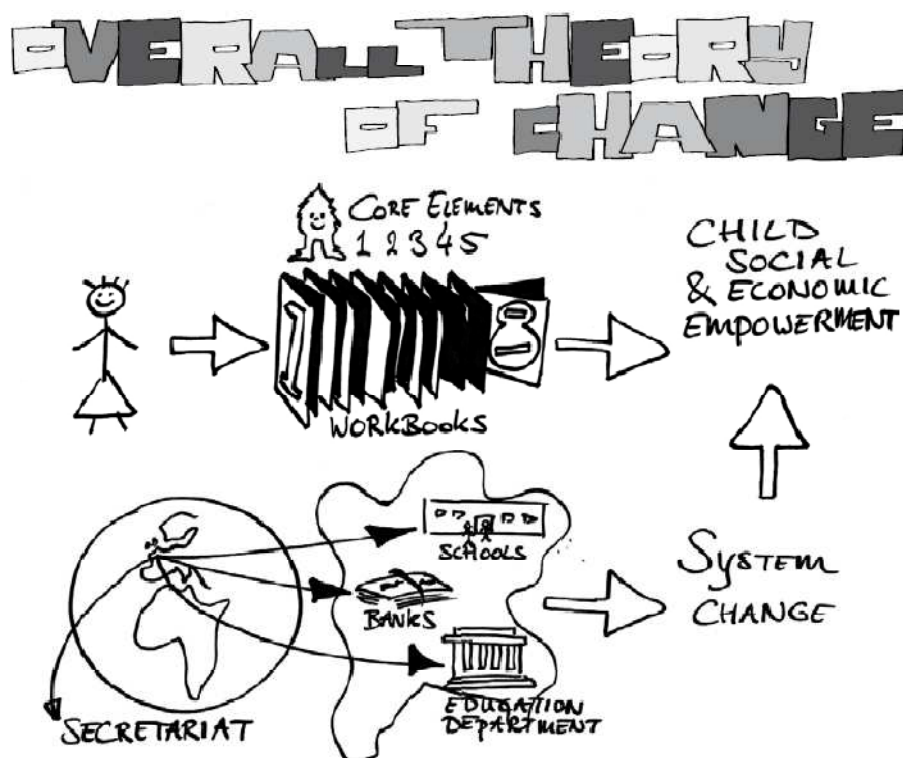 OVERALL THEORY
OF CHANGE
CORE ELEMENTS
1 2 3 4 5
1
8
WORKBOOKS
CHILD
SOCIAL
& ECONOMIC
EMPOWERMENT
SCHOOLS
BANKS
EDUCATION
DEPARTMENT
SECRETARIAT
SYSTEM
CHANGE